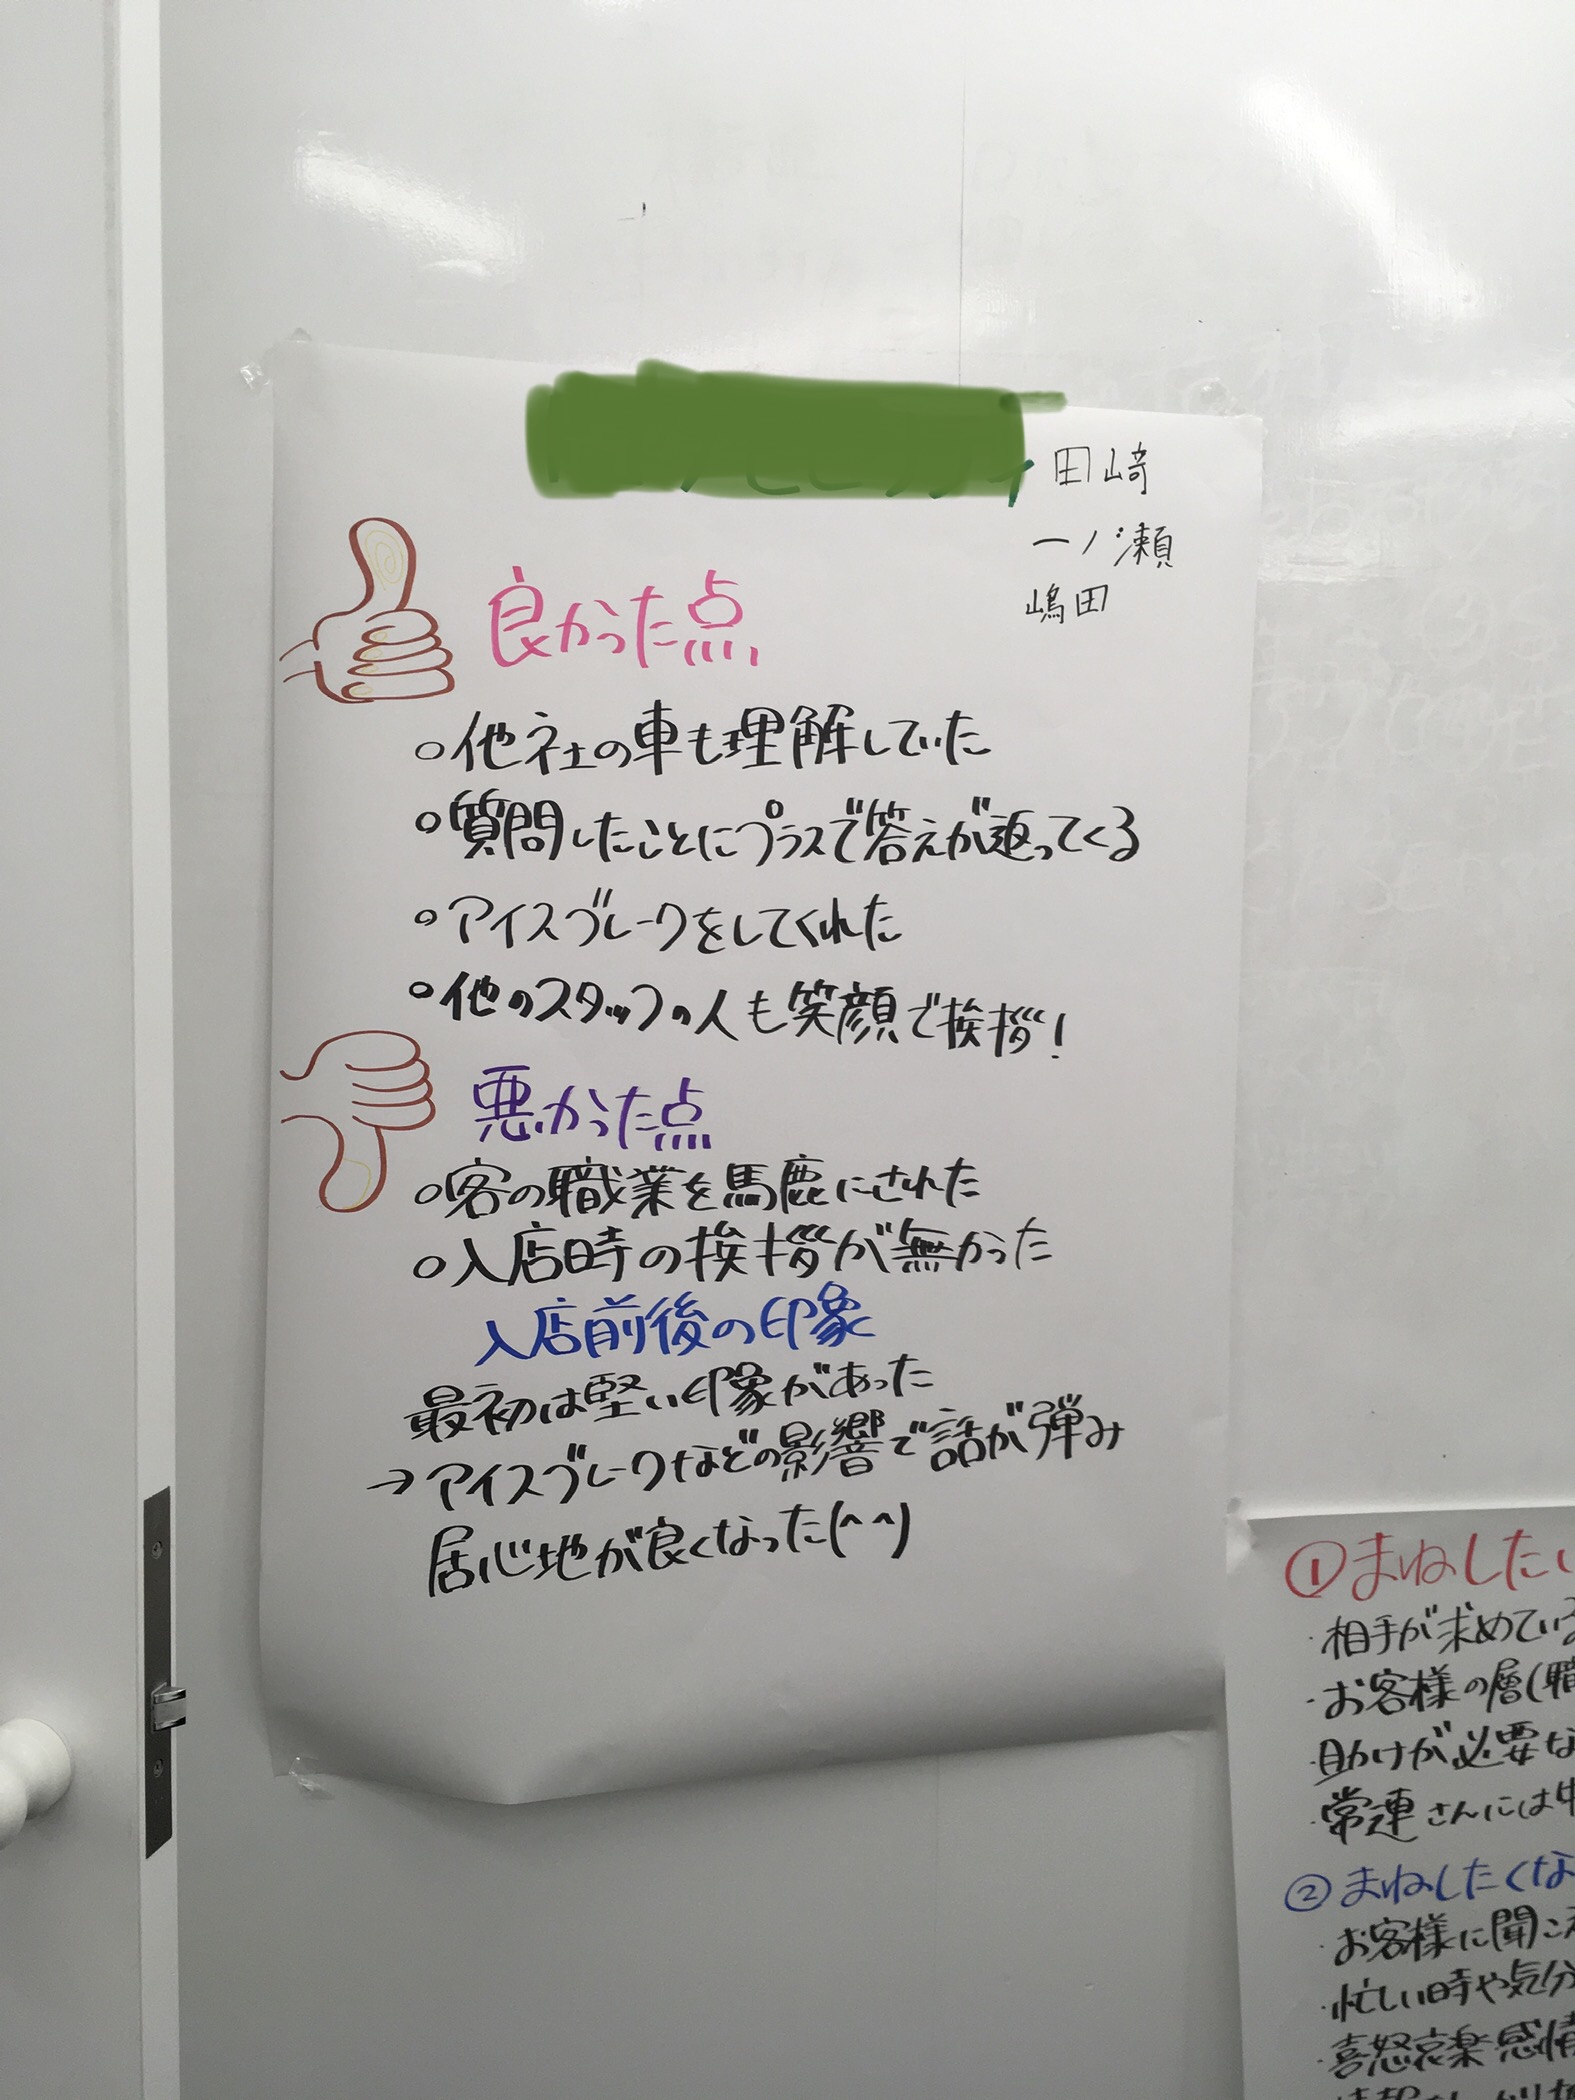 田崎
一ノ瀬
嶋田
良かった点
○他社の車も理解していた
○質問したことにプラスで答えが返ってくる
○アイスブレークをしてくれた
○他のスタッフの人も笑顔で挨拶!
悪かった点
○客の職業を馬鹿にされた
○入店時の挨拶が無かった
入店前後の印象
最初は堅い印象があった
→アイスブレークなどの影響で話が弾み
居心地が良くなった(^^)
①まねしたい
・相手が求めている
・お客様の層(職
・助けが必要な
・常連さんには
②まねしたくな
・お客様に聞こえ
・忙しい時や気分
・喜怒哀楽感情